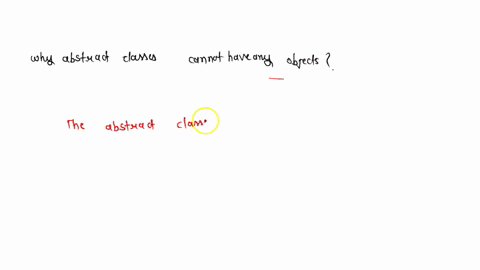 why abstract classes cannot have any objects ?
The abstract class